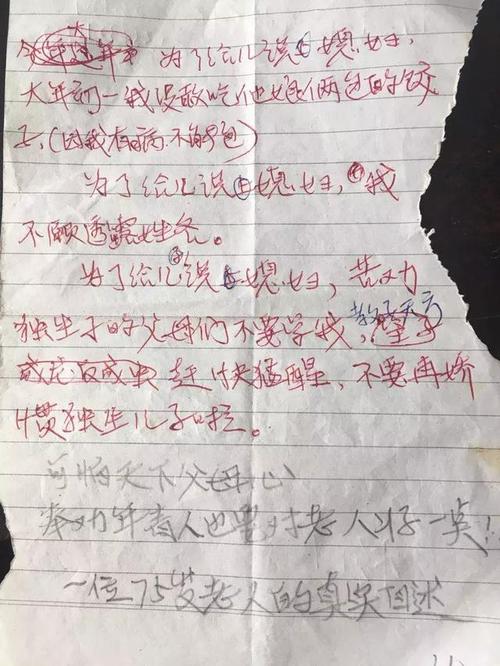 为了给儿说上媳妇,
大年初一我没敢吃他娘俩包的饺
子,(因我有病.不能包)
为了给儿说上媳妇,我
不愿透露姓名。
为了给儿说上媳妇,苦又力
独生子的父母们不要学我,望子
成龙反成虫 赶快猛醒,不要再娇
惯独生儿子啦。
可怜天下父母心
奉劝年青人也要对老人好一点!
一位75岁老人的真实自述